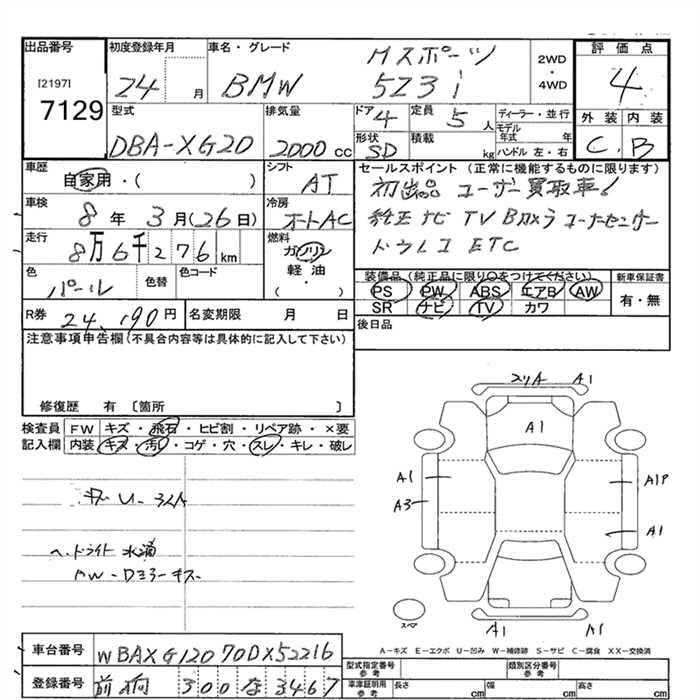 出品番号 初度登録年月 車名・グレード 評価点
[2197] 7129 24 月 BMW Mスポーツ 523i 2WD・4WD 4
型式 排気量 ドア 4 定員 5 人 ディーラー・並行 外装 内装
DBA-XG20 2000 cc 形状 SD 積載 kg モデル年式 年 ハンドル 左・右 C B
車歴 シフト セールスポイント (正常に機能するものに限ります)
自家用・( ) AT 初出品 ユーザー買取車!
車検 8 年 3 月 (26 日) 冷房 オートAC 純正ナビ TV Bカメラ コーナーセンサー
走行 8万6千276 km 燃料 ガソリン 軽油 ・ ( ) ドラレコ ETC
色 パール 色替 色コード 装備品 (純正品に限り○をつけてください) 新車保証書
PS PW ABS エアB AW 有・無
SR ナビ TV カワ
R券 24,190 円 名変期限 月 日 後日品
注意事項申告欄 (不具合内容等は具体的に記入して下さい)
修復歴 有 〔箇所 〕
検査員 FW キズ・飛石・ヒビ割・リペア跡・×要
記入欄 内装 キズ・汚レ・コゲ・穴・スレ・キレ・破レ
スリA A1
A1
A1 A1P
A3 A1
ヘッドライト 水滴
AW-Dミラーキズ
スペア A1 A1
A-キズ E-エクボ U-凹み W-補修跡 S-サビ C-腐食 XX-交換済
車台番号 WBAXG12070DX52216
型式指定番号 参考 類別区分番号 参考
登録番号 300 な 3467
車庫証明用 参考 長さ cm 幅 cm 高さ cm